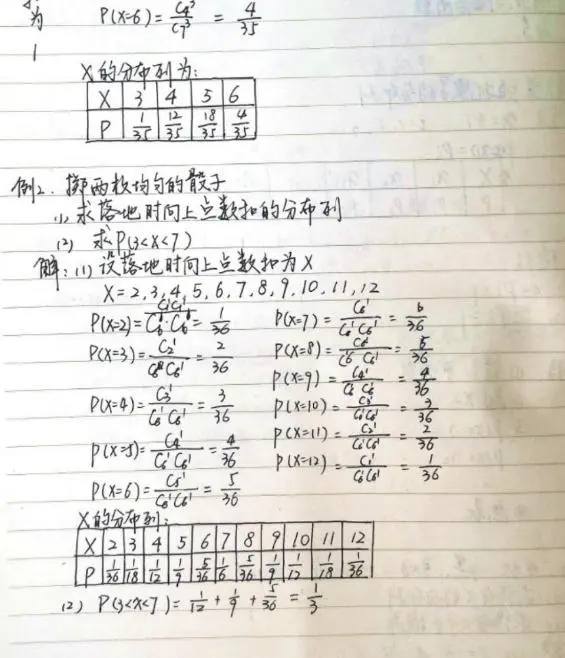 为
P(X=6)=C₄³/C₇³=4/35
X的分布列为:
X 3 4 5 6
P 1/35 12/35 18/35 4/35
例2. 掷两枚均匀的骰子
(1) 求落地时向上点数和的分布列
(2) 求P(3<X<7)
解:(1)设落地时向上点数和为X
X=2,3,4,5,6,7,8,9,10,11,12
P(X=2)=C₁¹C₁¹/C₆¹C₆¹=1/36
P(X=3)=C₂¹/C₆¹C₆¹=2/36
P(X=4)=C₃¹/C₆¹C₆¹=3/36
P(X=5)=C₄¹/C₆¹C₆¹=4/36
P(X=6)=C₅¹/C₆¹C₆¹=5/36
P(X=7)=C₆¹/C₆¹C₆¹=6/36
P(X=8)=C₅¹/C₆¹C₆¹=5/36
P(X=9)=C₄¹/C₆¹C₆¹=4/36
P(X=10)=C₃¹/C₆¹C₆¹=3/36
P(X=11)=C₂¹/C₆¹C₆¹=2/36
P(X=12)=C₁¹/C₆¹C₆¹=1/36
X的分布列:
X 2 3 4 5 6 7 8 9 10 11 12
P 1/36 1/18 1/12 1/9 5/36 1/6 5/36 1/9 1/12 1/18 1/36
(2) P(3<X<7)=1/12+1/9+5/36=1/3